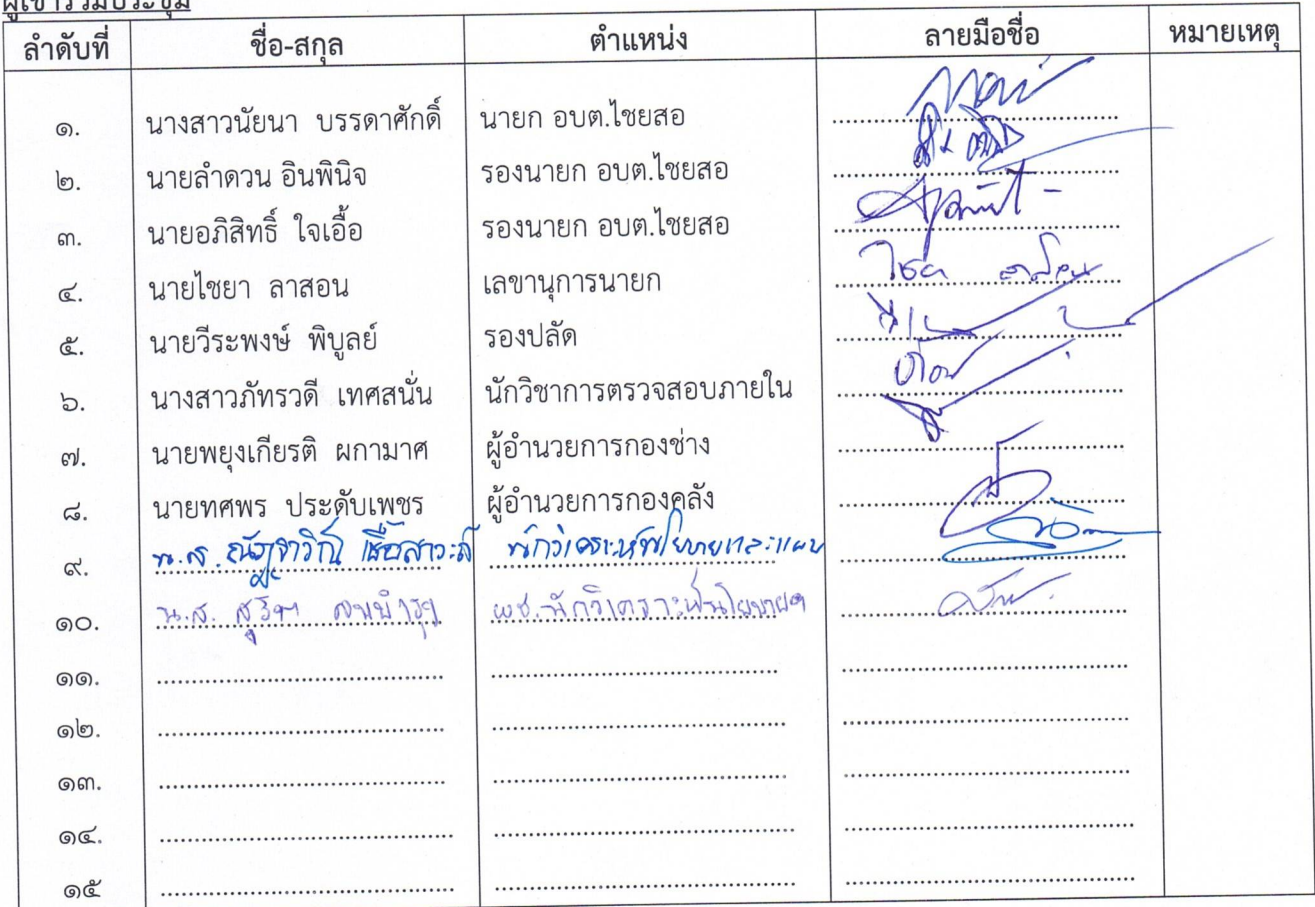 ผู้เข้าร่วมประชุม
ลำดับที่ ชื่อ-สกุล ตำแหน่ง ลายมือชื่อ หมายเหตุ
๑. นางสาวนัยนา บรรดาศักดิ์ นายก อบต.ไชยสอ
๒. นายลำดวน อินพินิจ รองนายก อบต.ไชยสอ
๓. นายอภิสิทธิ์ ใจเอื้อ รองนายก อบต.ไชยสอ
๔. นายไชยา ลาสอน เลขานุการนายก ไชยา ลาสอน
๕. นายวีระพงษ์ พิบูลย์ รองปลัด
๖. นางสาวภัทรวดี เทศสนั่น นักวิชาการตรวจสอบภายใน
๗. นายพยุงเกียรติ ผกามาศ ผู้อำนวยการกองช่าง
๘. นายทศพร ประดับเพชร ผู้อำนวยการกองคลัง
๙. น.ส. นักวิเคราะห์นโยบายและแผน
๑๐. น.ส. ผช.นักวิเคราะห์นโยบายฯ
๑๑.
๑๒.
๑๓.
๑๔.
๑๕